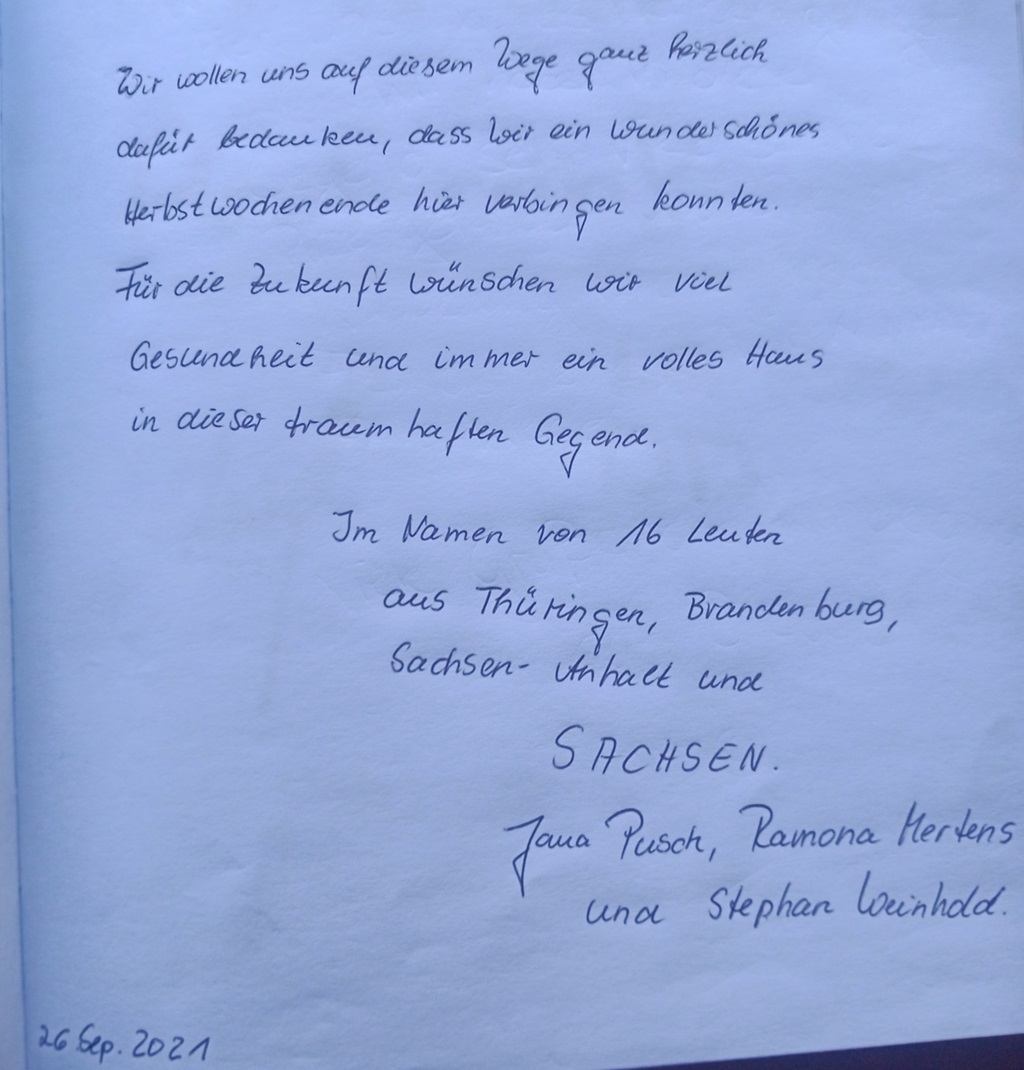 Wir wollen uns auf diesem Wege ganz herzlich
dafür bedanken, dass wir ein wunderschönes
Herbstwochenende hier verbingen konnten.
Für die Zukunft wünschen wir viel
Gesundheit und immer ein volles Haus
in dieser traumhaften Gegend.
Im Namen von 16 Leuten
aus Thüringen, Brandenburg,
Sachsen-Anhalt und
SACHSEN.
Jana Pusch, Ramona Mertens
und Stephan Weinhold.
26 Sep. 2021